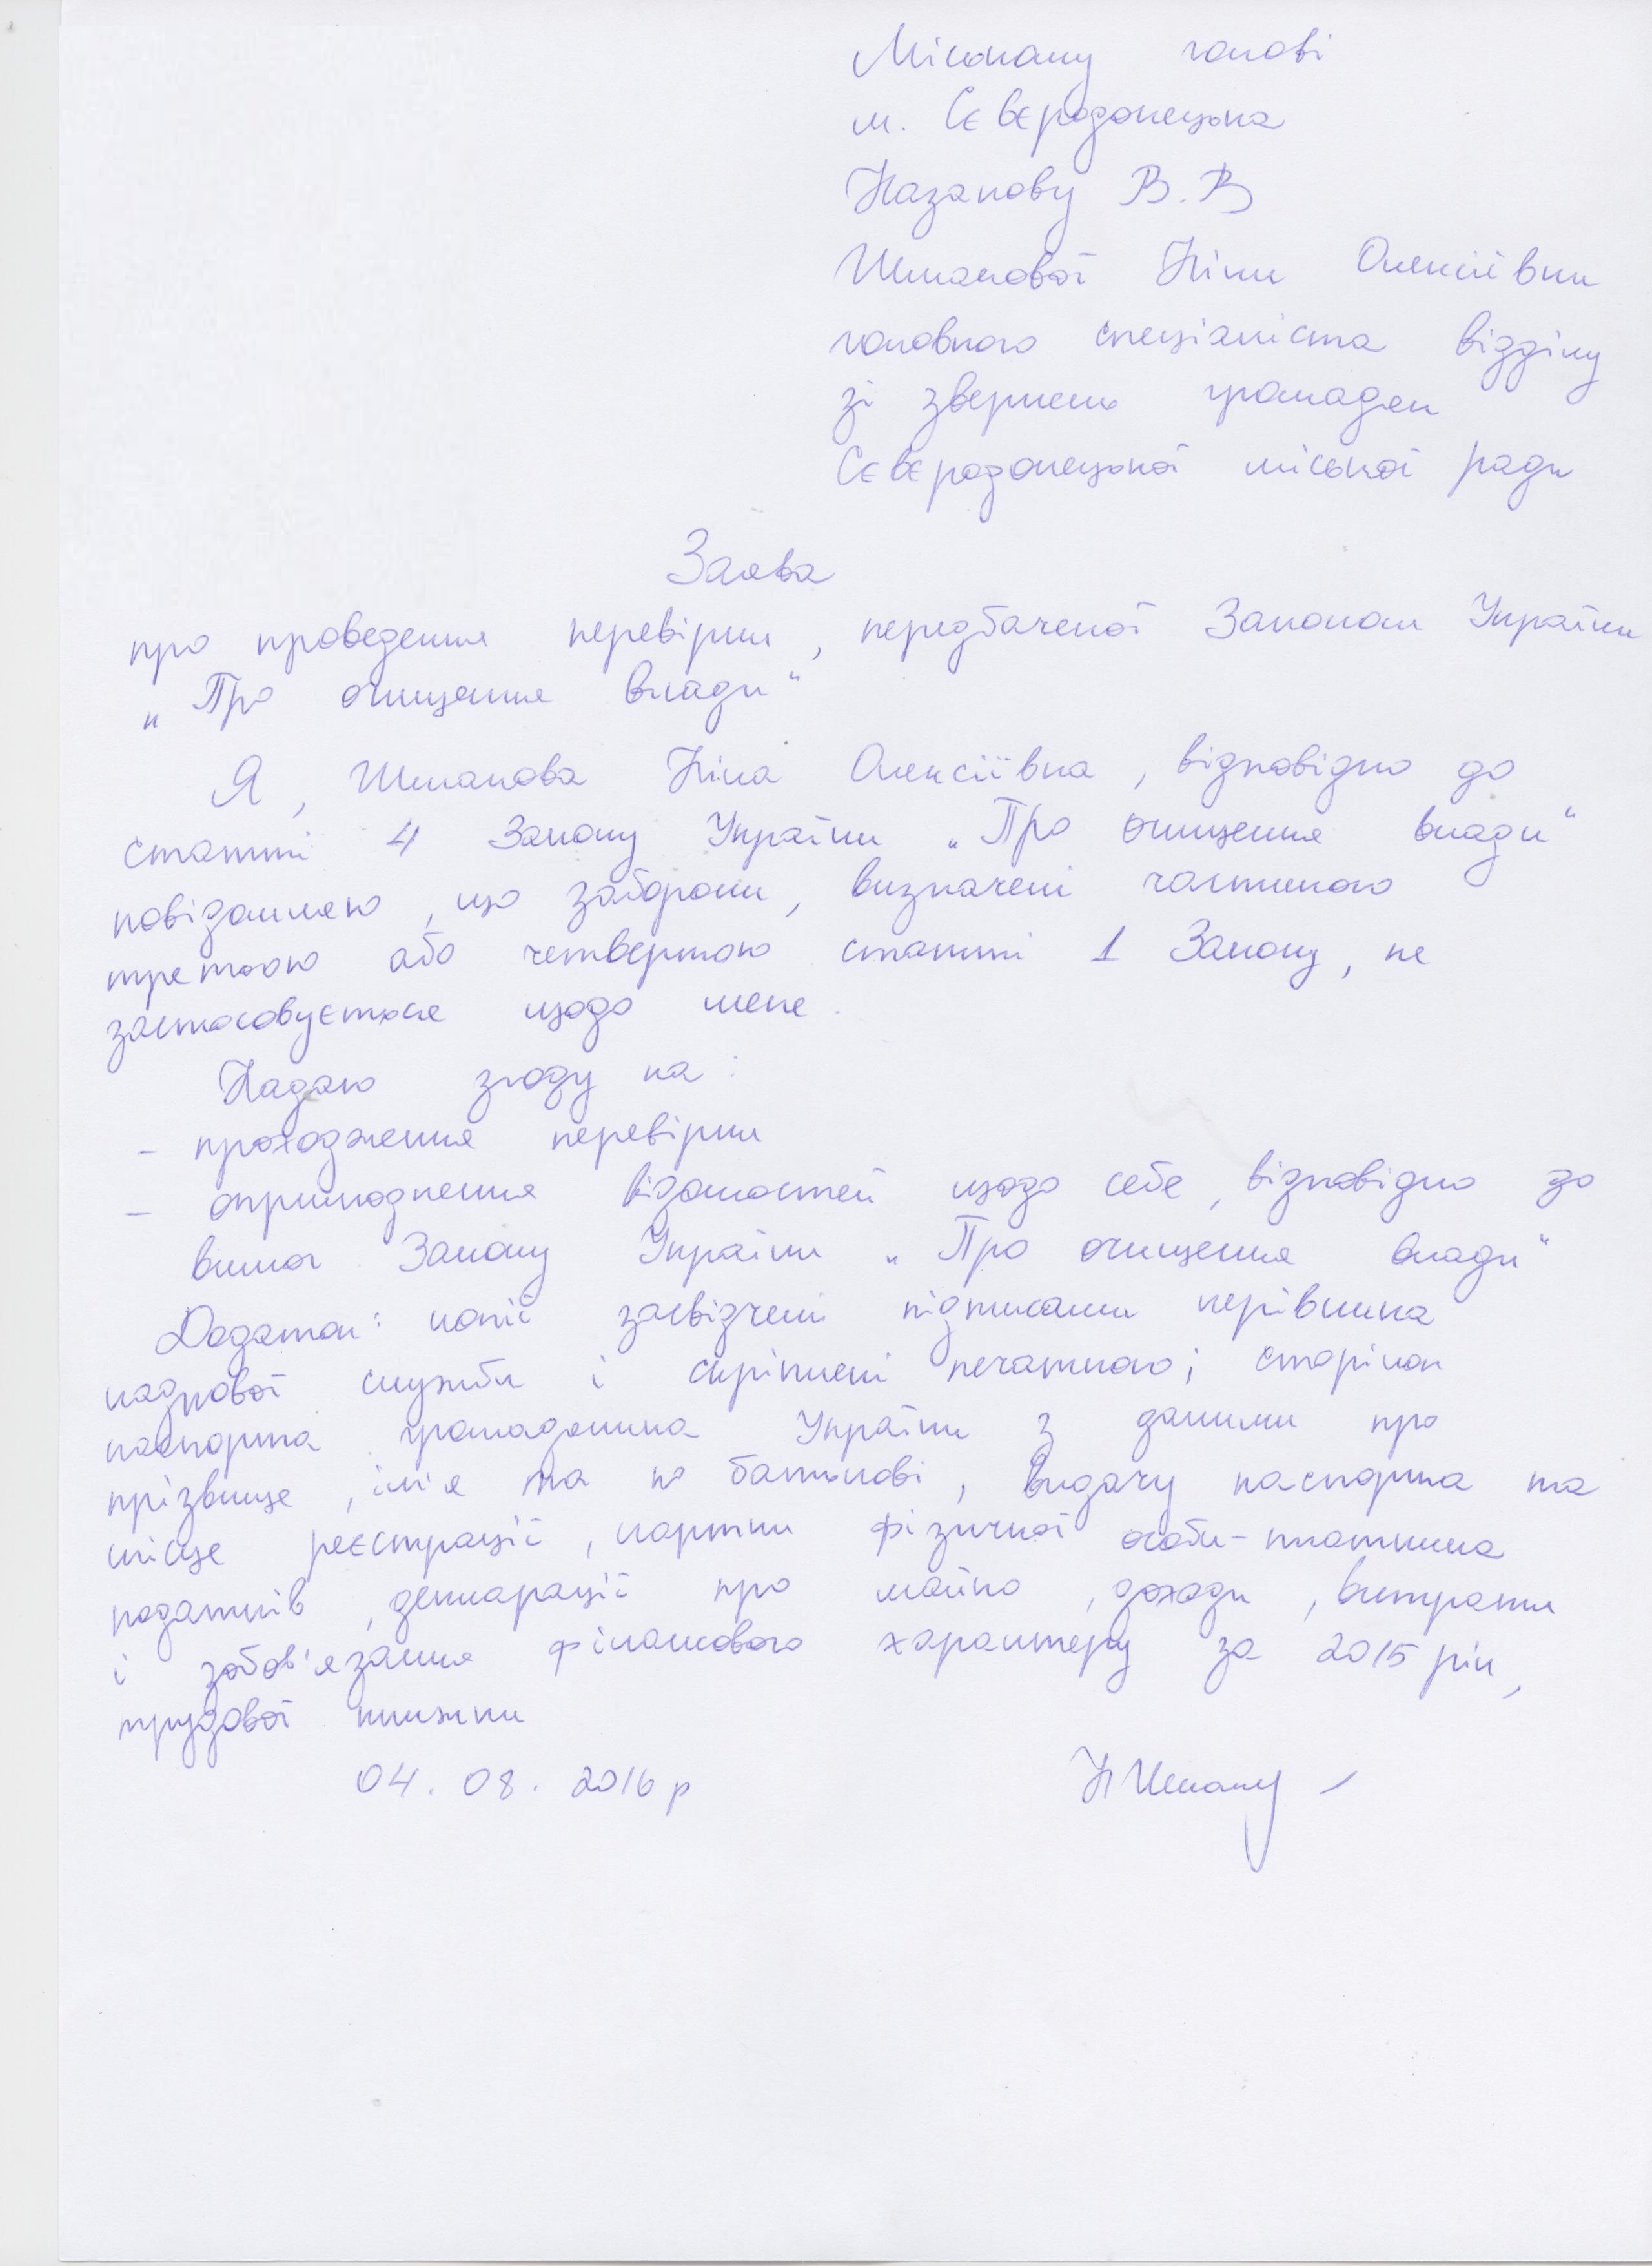 Міському голові
м. Сєвєродонецька
Казакову В.В
Шмакової Ніни Олексіївни
головного спеціаліста відділу
зі звернень громадян
Сєвєродонецької міської ради
Заява
про проведення перевірки, передбаченої Законом України
„Про очищення влади"
Я, Шмакова Ніна Олексіївна, відповідно до
статті 4 Закону України „Про очищення влади"
повідомляю, що заборони, визначені частиною
третьою або четвертою статті 1 Закону, не
застосовується щодо мене.
Надаю згоду на:
- проходження перевірки
- оприлюднення відомостей щодо себе, відповідно до
вимог Закону України „Про очищення влади"
Додаток: копії засвідчені підписами керівника
кадрової служби і скріплені печаткою; сторінок
паспорта громадянина України з даними про
прізвище, ім'я та по батькові, видачу паспорта та
місце реєстрації, картки фізичної особи-платника
податків, декларації про майно, доходи, витрати
і зобов'язання фінансового характеру за 2015 рік,
трудової книжки
04.08.2016 р